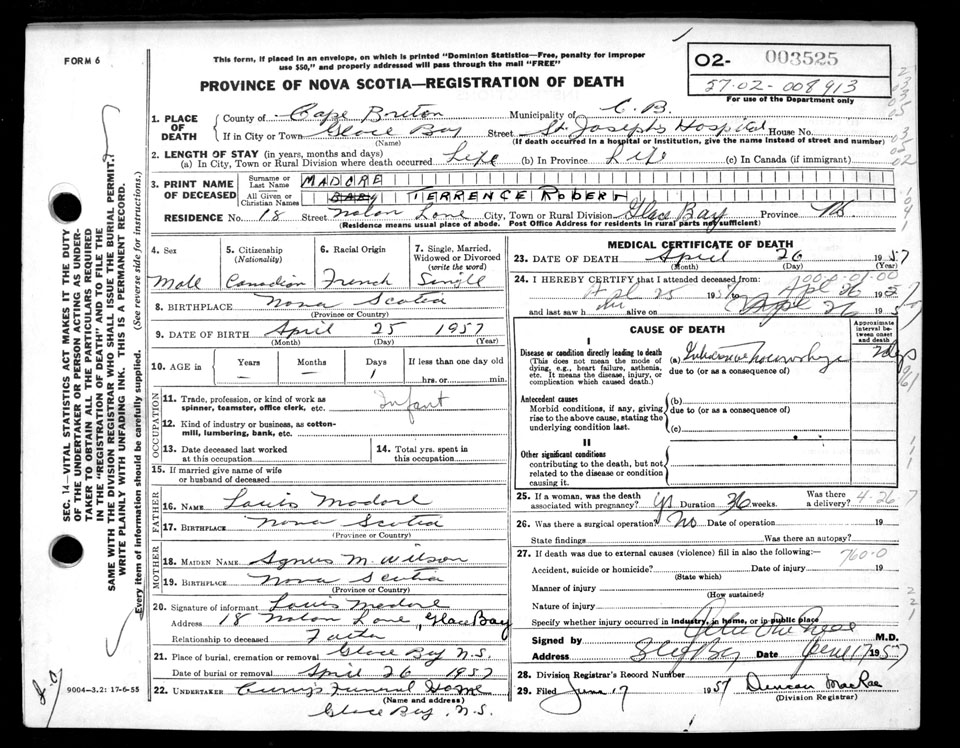 FORM 6
This form, if placed in an envelope, on which is printed "Dominion Statistics—Free, penalty for improper
use $50," and properly addressed will pass through the mail "FREE"
PROVINCE OF NOVA SCOTIA—REGISTRATION OF DEATH
02- 003525
57-02-008913
For use of the Department only
1. PLACE OF DEATH
County of Cape Breton Municipality of C. B.
If in City or Town Glace Bay Street St. Josephs Hospital House No.
(Name) (If death occurred in a hospital or institution, give the name instead of street and number)
2. LENGTH OF STAY (in years, months and days)
(a) In City, Town or Rural Division where death occurred Life (b) In Province Life (c) In Canada (if immigrant)
3. PRINT NAME OF DECEASED
Surname or Last Name MADORE
All Given or Christian Names BABY TERRENCE ROBERT
RESIDENCE No. 18 Street Nolan Lane City, Town or Rural Division Glace Bay Province NS
(Residence means usual place of abode. Post Office Address for residents in rural parts not sufficient)
4. Sex
Male
5. Citizenship (Nationality)
Canadian
6. Racial Origin
French
7. Single, Married, Widowed or Divorced (write the word)
Single
8. BIRTHPLACE Nova Scotia
(Province or Country)
9. DATE OF BIRTH April 25 1957
(Month) (Day) (Year)
10. AGE in Years — Months — Days 1 If less than one day old
hrs. or min.
OCCUPATION
11. Trade, profession, or kind of work as spinner, teamster, office clerk, etc. Infant
12. Kind of industry or business, as cotton-mill, lumbering, bank, etc.
13. Date deceased last worked at this occupation
14. Total yrs. spent in this occupation
15. If married give name of wife or husband of deceased
FATHER
16. NAME Louis Madore
17. BIRTHPLACE Nova Scotia
(Province or Country)
MOTHER
18. MAIDEN NAME Agnes M. Wilson
19. BIRTHPLACE Nova Scotia
(Province or Country)
20. Signature of informant Louis Madore
Address 18 Nolan Lane, Glace Bay
Relationship to deceased Father
21. Place of burial, cremation or removal Glace Bay N.S.
Date of burial or removal April 26 1957
22. UNDERTAKER Curry's Funeral Home
(Name and address)
Glace Bay, N.S.
MEDICAL CERTIFICATE OF DEATH
23. DATE OF DEATH April 26 1957
(Month) (Day) (Year)
24. I HEREBY CERTIFY that I attended deceased from:
Apl 25 1957 to Apl 26 1957
and last saw him alive on Apl 26 1957
CAUSE OF DEATH
Approximate interval between onset and death
I
Disease or condition directly leading to death
(This does not mean the mode of dying, e.g., heart failure, asthenia, etc. It means the disease, injury, or complication which caused death.)
(a)
due to (or as a consequence of)
Antecedent causes
Morbid conditions, if any, giving rise to the above cause, stating the underlying condition last.
(b)
due to (or as a consequence of)
(c)
II
Other significant conditions
contributing to the death, but not related to the disease or condition causing it.
25. If a woman, was the death associated with pregnancy? yes Duration 36 weeks. Was there a delivery? 4-26-7
26. Was there a surgical operation? No Date of operation 19
State findings Was there an autopsy?
27. If death was due to external causes (violence) fill in also the following:— 760-0
Accident, suicide or homicide? Date of injury 19
(State which)
Manner of injury
(How sustained)
Nature of injury
Specify whether injury occurred in industry, in home, or in public place
Signed by M.D.
Address Glace Bay Date June 17 1957
28. Division Registrar's Record Number
29. Filed June 17 1957 Duncan MacRae
(Division Registrar)
SEC. 14—VITAL STATISTICS ACT MAKES IT THE DUTY
OF THE UNDERTAKER OR PERSON ACTING AS UNDER-
TAKER TO OBTAIN ALL THE PARTICULARS REQUIRED
IN THE "REGISTRATION OF DEATH" AND TO FILE THE
SAME WITH THE DIVISION REGISTRAR WHO SHALL ISSUE THE BURIAL PERMIT.
WRITE PLAINLY WITH UNFADING INK. THIS IS A PERMANENT RECORD.
Every item of information should be carefully supplied. (See reverse side for instructions.)
9004-3.2: 17-6-55